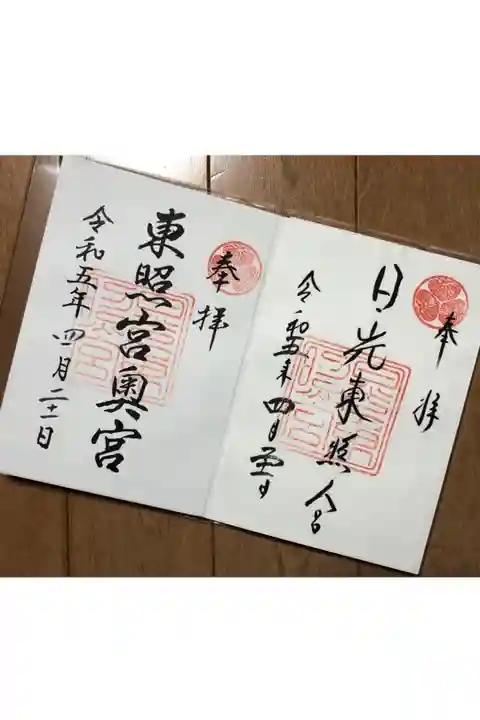 奉拝
日光東照宮
令和五年四月
奉拝
東照宮奥宮
令和五年四月二十一日